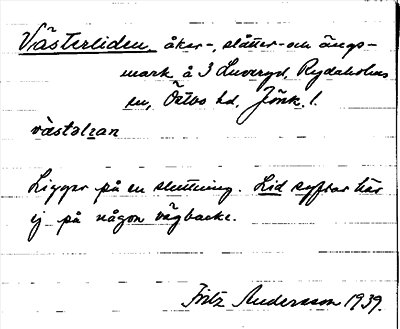 Västerliden åker-, slåtter- och ängs-
mark å 3 Luveryd, Rydaholms
sn, Östbo hd, Jönk. l.
västəlɩan
Ligger på en sluttning. Lid syftar här
ej på någon vägbacke.
Fritz Andersson 1939.